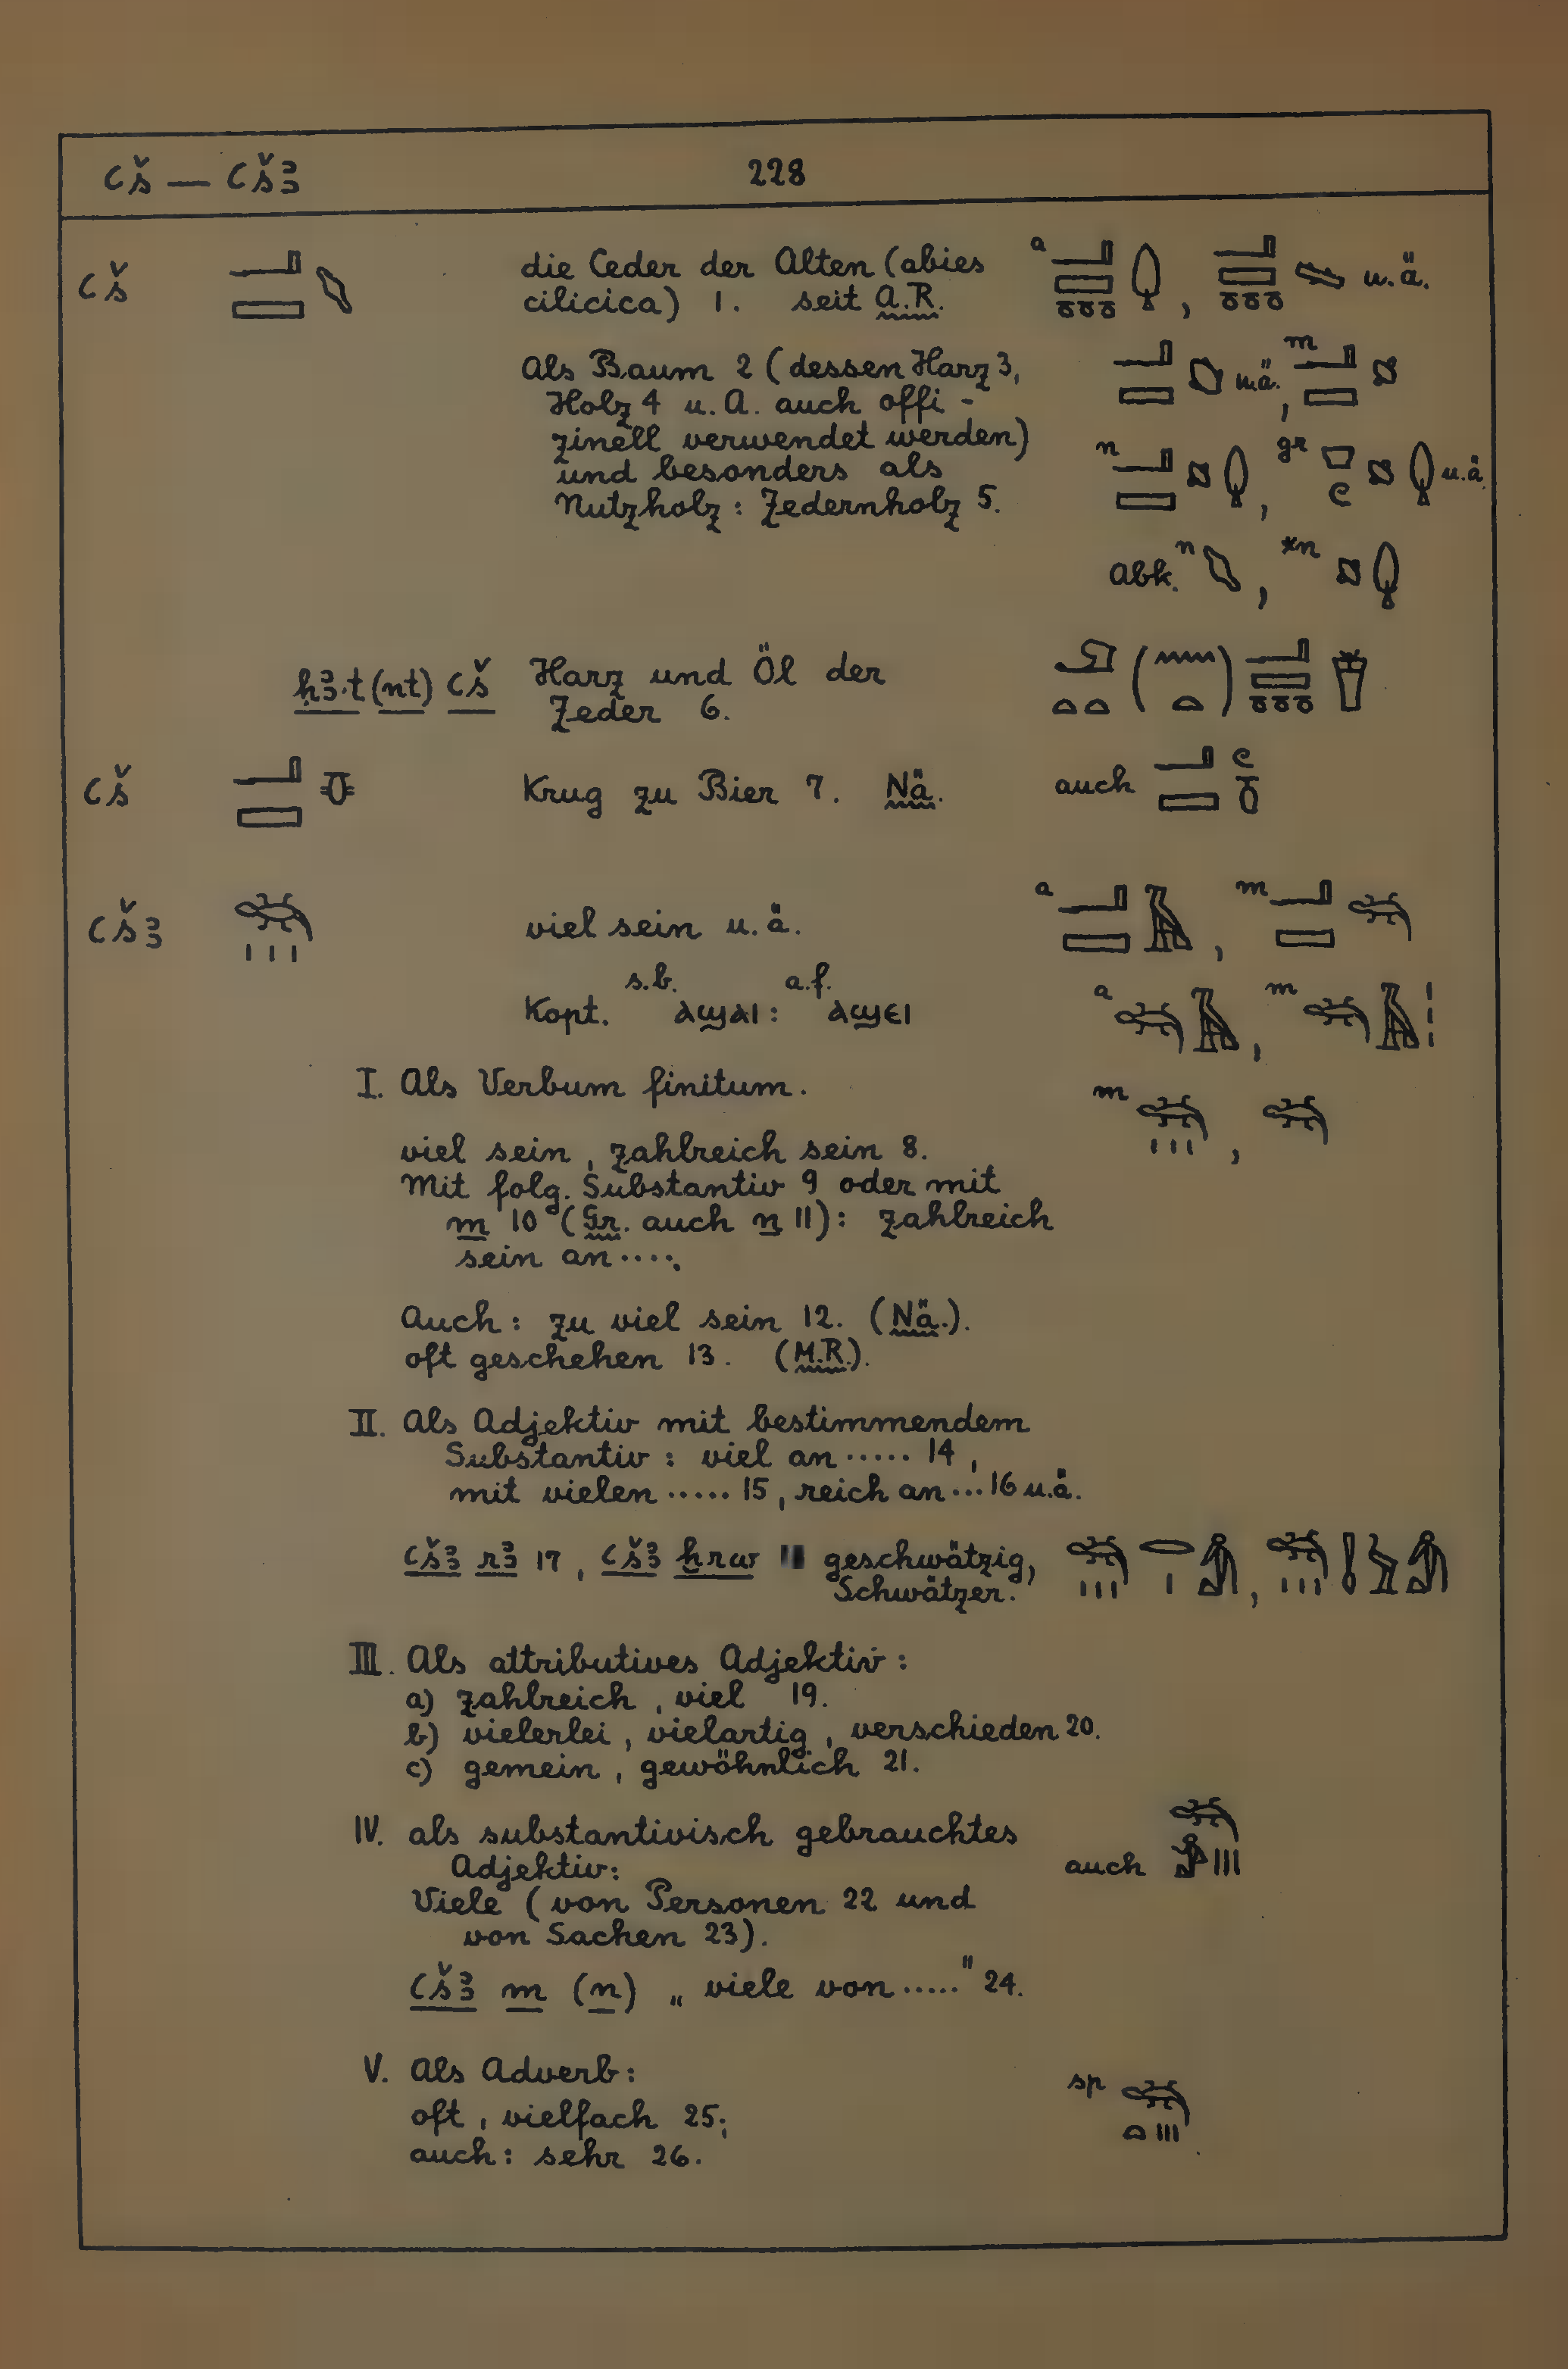 ꜥš — ꜥšꜣ 228
ꜥš die Ceder der Alten (abies a , u.ä.
cilicica) 1. seit A.R.
Als Baum 2 (dessen Harz 3, u.ä. , m
Holz 4 u. A. auch offi-
zinell verwendet werden) n , gr u.ä.
und besonders als
Nutzholz: Zedernholz 5.
Abk. n , *n
ḥꜣ.t (nt) ꜥš Harz und Öl der
Zeder 6.
ꜥš Krug zu Bier 7. Nä. auch
ꜥšꜣ viel sein u.ä. a , m
Kopt. s.b. ⲁϣⲁⲓ: a.f. ⲁϣⲉⲓ a , m
I. Als Verbum finitum. m ,
viel sein, zahlreich sein 8.
Mit folg. Substantiv 9 oder mit
m 10 (Gr. auch n 11): zahlreich
sein an .....
Auch: zu viel sein 12. (Nä.).
oft geschehen 13. (M.R.).
II. Als Adjektiv mit bestimmendem
Substantiv: viel an ..... 14,
mit vielen ..... 15, reich an ... 16 u.ä.
ꜥšꜣ rꜣ 17, ꜥšꜣ ḫrw geschwätzig,
Schwätzer.
III. Als attributives Adjektiv:
a) zahlreich, viel 19.
b) vielerlei, vielartig, verschieden 20.
c) gemein, gewöhnlich 21.
IV. als substantivisch gebrauchtes
Adjektiv: auch
Viele (von Personen 22 und
von Sachen 23).
ꜥšꜣ m (n) „viele von ....." 24.
V. Als Adverb: sp
oft, vielfach 25;
auch: sehr 26.